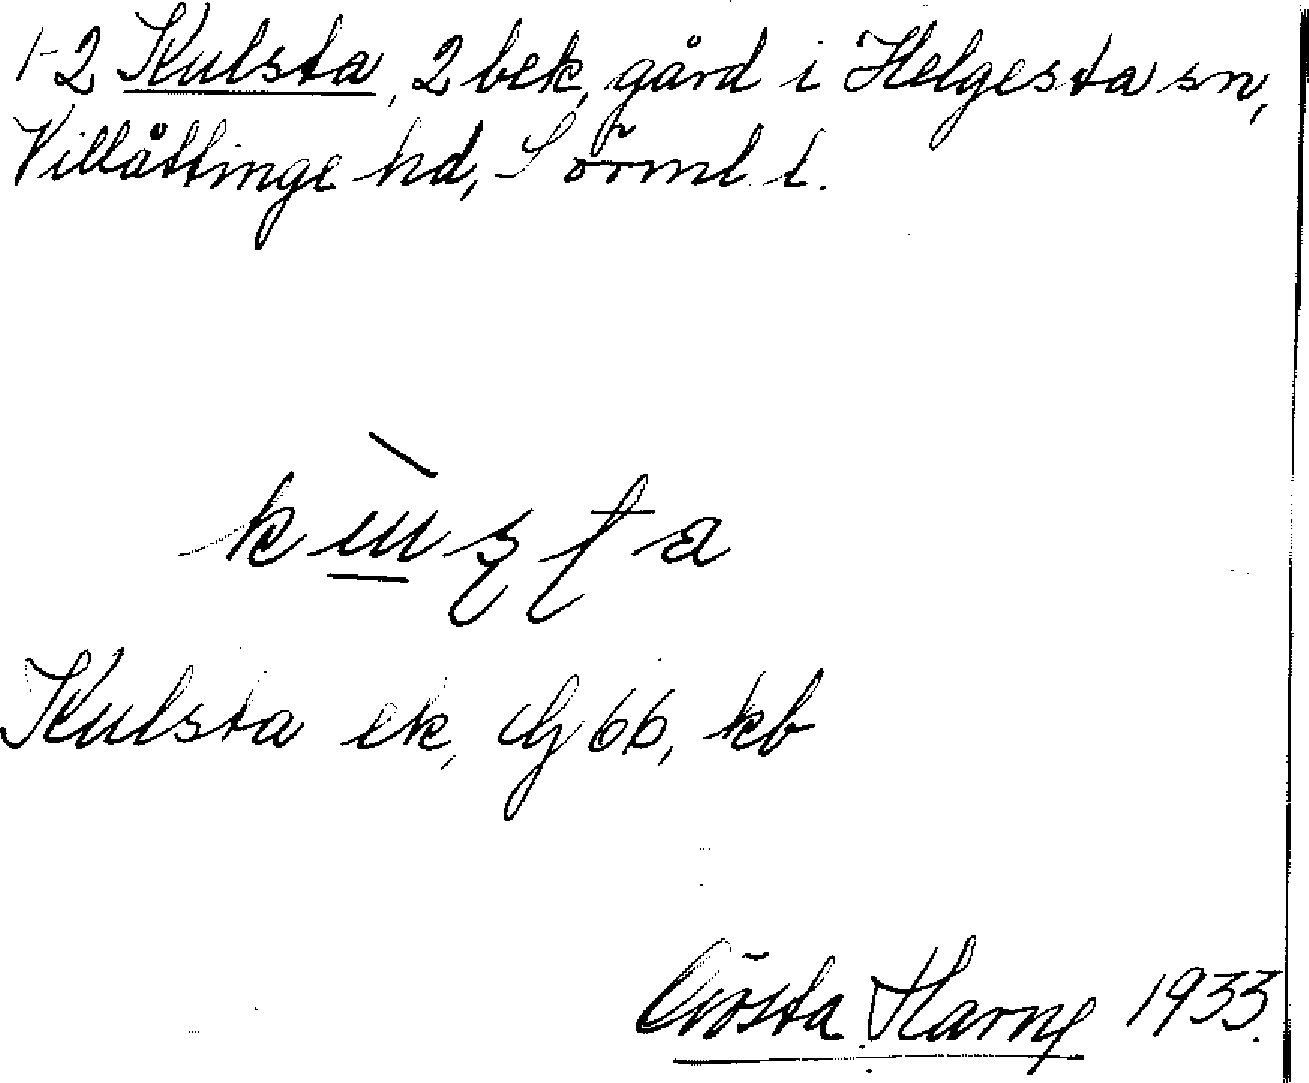 1-2 Kulsta, 2 bek, gård i Helgesta sn,
Villåttinge hd, Sörml. l.
Kulsta ek, Gj 66, kb
Gösta Harne 1933.